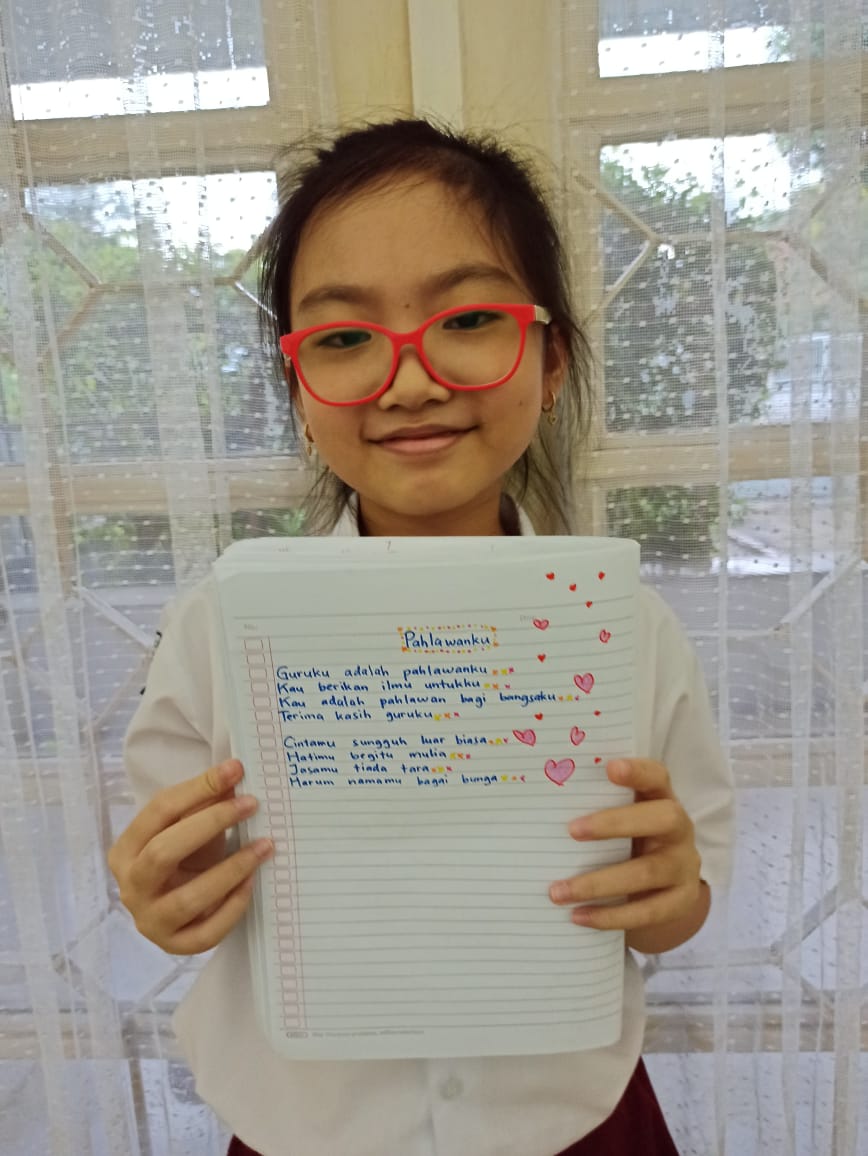 No:
Date:
Pahlawanku
Guruku adalah pahlawanku
Kau berikan ilmu untukku
Kau adalah pahlawan bagi bangsaku
Terima kasih guruku
Cintamu sungguh luar biasa
Hatimu begitu mulia
Jasamu tiada tara
Harum namamu bagai bunga